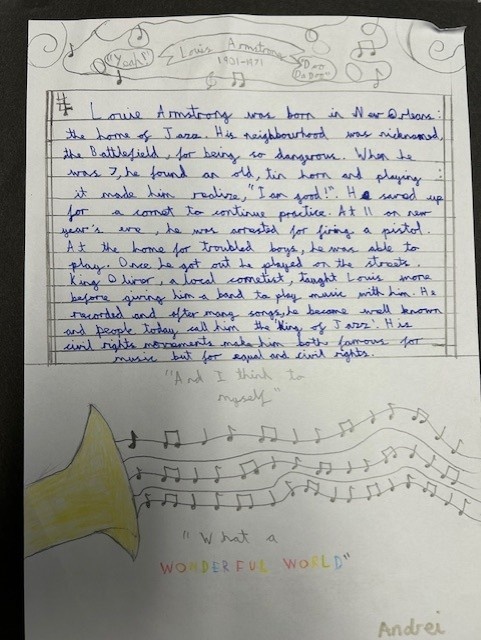 "Yeah!"
Louis Armstrong
1901-1971
"Doo
Da Doo"
Louie Armstrong was born in New Orleans:
the home of Jazz. His neighbourhood was nicknamed,
the Battlefield, for being so dangerous. When he
was 7, he found an old, tin horn and playing
it made him realize, "I am good!". He saved up
for a cornet to continue practice. At 11 on new
year's eve, he was arrested for firing a pistol.
At the home for troubled boys, he was able to
play. Once he got out he played on the streets.
King Oliver, a local cornetist, taught Louis more
before giving him a band to play music with him. He
recorded and after many songs, he became well known
and people today call him the 'King of Jazz'. His
civil rights movements make him both famous for
music but for equal and civil rights.
"And I think to
myself"
"What a
WONDERFUL WORLD"
Andrei